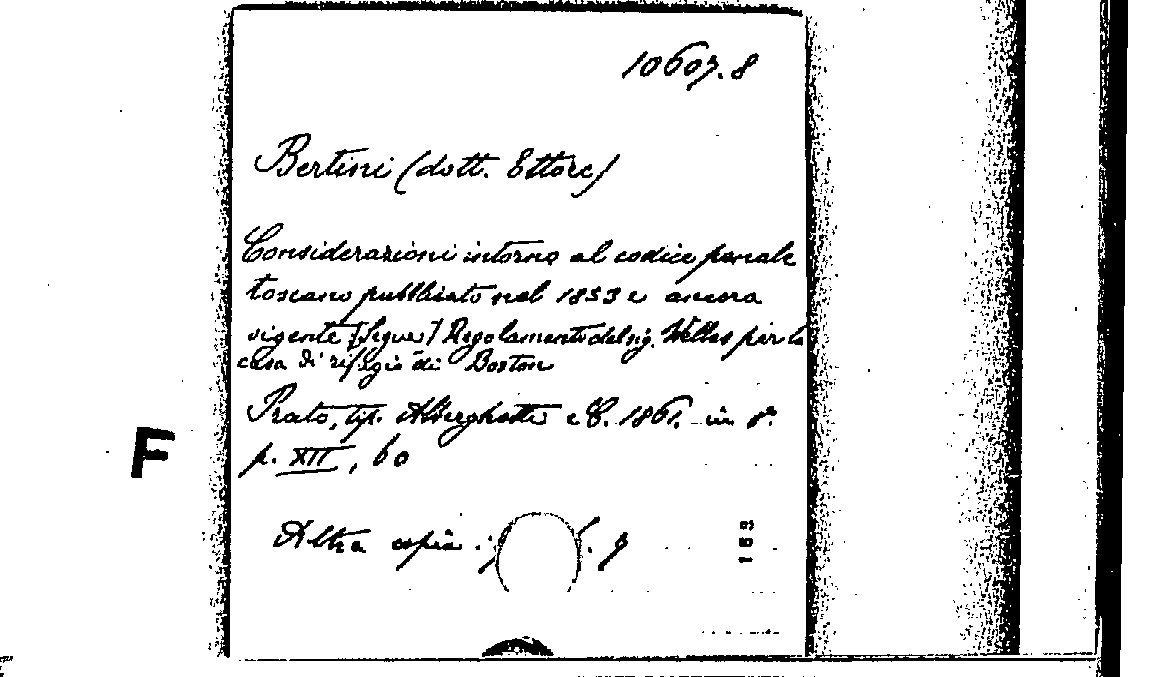 10607.8
Bertini (dott. Ettore)
Considerazioni intorno al codice penale
toscano pubblicato nel 1853 e ancora
vigente [Segue] Regolamento del sig. Welles per la
casa di rifugio di Boston
Prato, tip. Alberghetti e C. 1861. in 8°
F
p. XII, 60
Altra copia